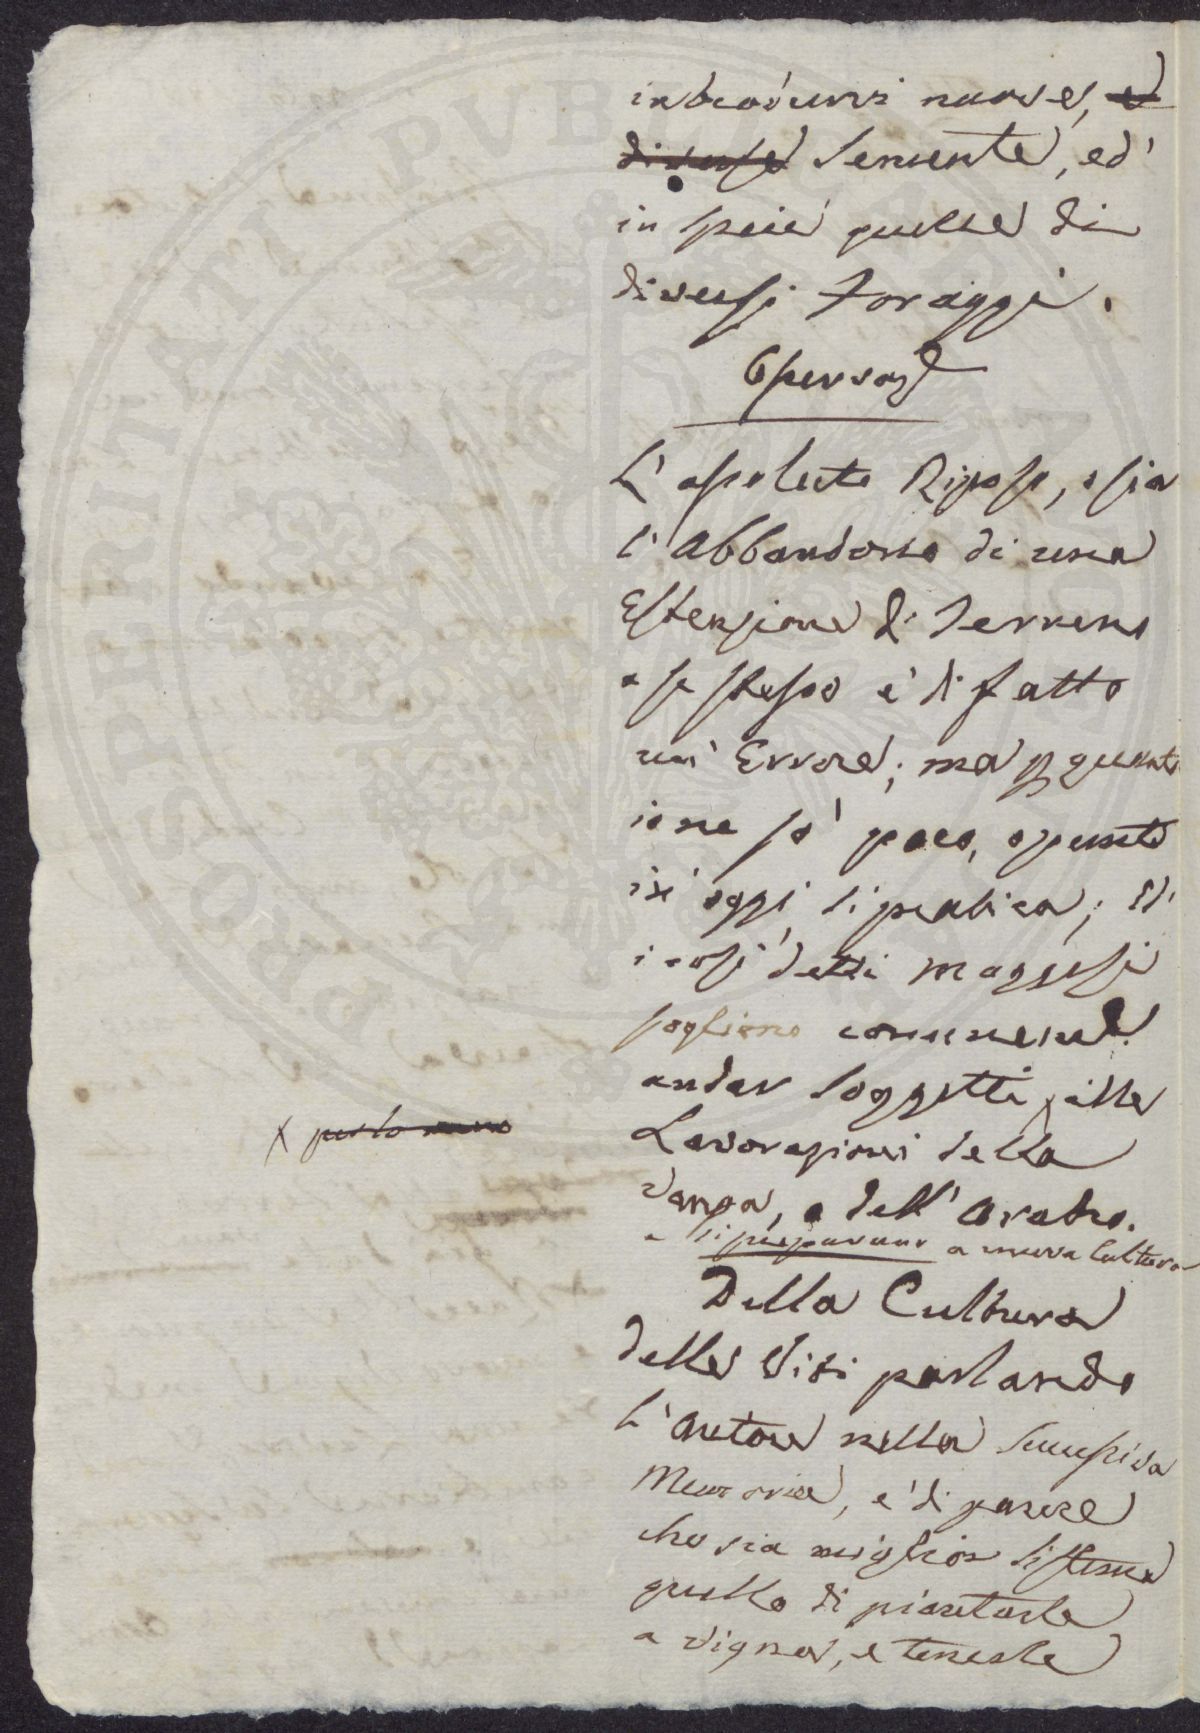 introdursi nuove, e
diverse Semente, ed'
in specie quelle di
diversi Foraggi.
Osservaz.e
L'assoluto Riposo, o sia
l'Abbandono di una
Estenzione di Terreno
a se stesso è di fatto
un' Errore; ma p quanto
io ne sò poco, o punto
in oggi si pratica; Ed'
i così detti maggesi
sogliono comunem.e
andar soggetti x alle
X per lo meno
Lavorazioni della
Vanga, o dell' Aratro.
e si preparano a nuova Cultura
Della Cultura
delle Viti parlando
l'Autore nella succosiva
Memoria, è di parere
che sia miglior sistema
quello di piantarle
a Vigna, e tenerle
PROSPERITATI PVBLICAE